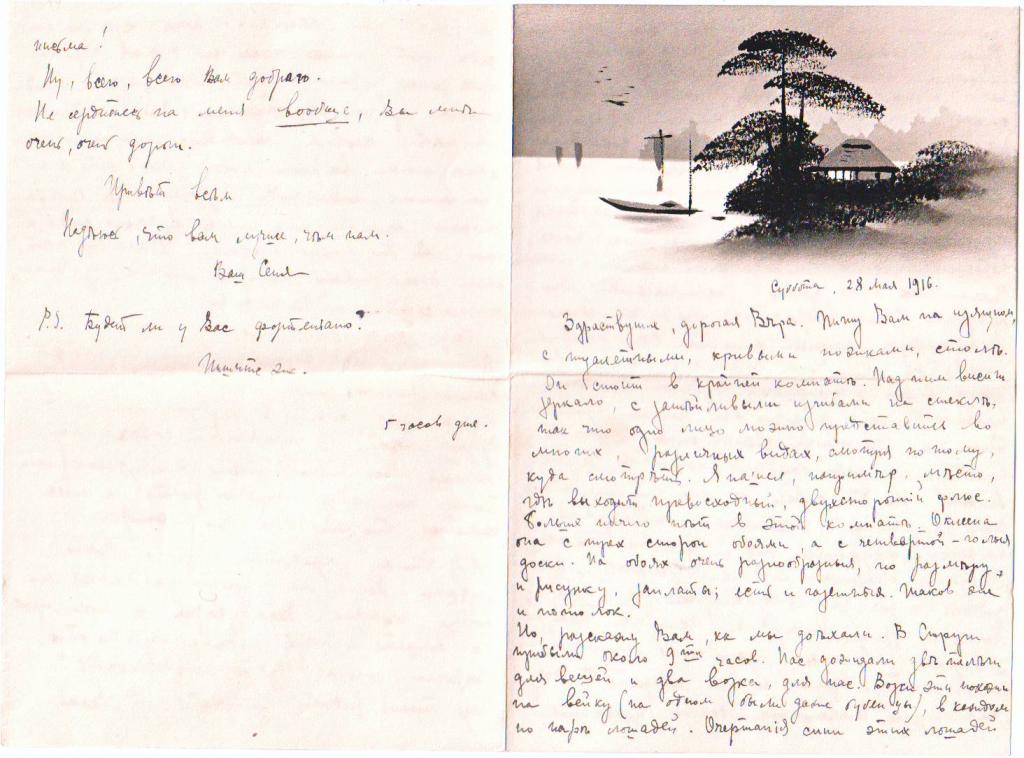 письма!
Ну, всего, всего Вам добраго.
Не сердитесь на меня вообще, Вы мне
очень, очень дороги.
Привѣтъ всѣм
Надѣюсь, что вам лучше, чѣм нам.
Ваш Сеня
P.S. Будет ли у Вас фортепиано?
Пишите же.
5 часов дня.
Суббота, 28 мая 1916.
Здравствуйте, дорогая Вѣра. Пишу Вам на изящном,
с туалетными, кривыми ножками, столѣ.
Он стоит в крайней комнатѣ. Над ним висит
зеркало, с затѣйливыми изгибами на стеклѣ,
так что одно лицо можно представить во
многих, различных видах, смотря по тому,
куда смотрѣть. Я нашел, напримѣр, мѣсто,
гдѣ выходит превосходный, двухсторонній флюс.
Больше ничего нѣт в этой комнатѣ. Оклеена
она с трех сторон обоями, а с четвертой – голыя
доски. На обоях очень разнообразныя, по размѣру
и рисунку, заплаты; есть и газетныя. Таков же
и потолок.
Но, разскажу Вам, как мы доѣхали. В Струги
прибыли около 9ти часов. Нас дожидали двѣ телѣги
для вещей и два возка, для нас. Возки эти похожи
на вейку (на одном были даже бубенцы), в каждом
по парѣ лошадей. Очертанія спин этих лошадей